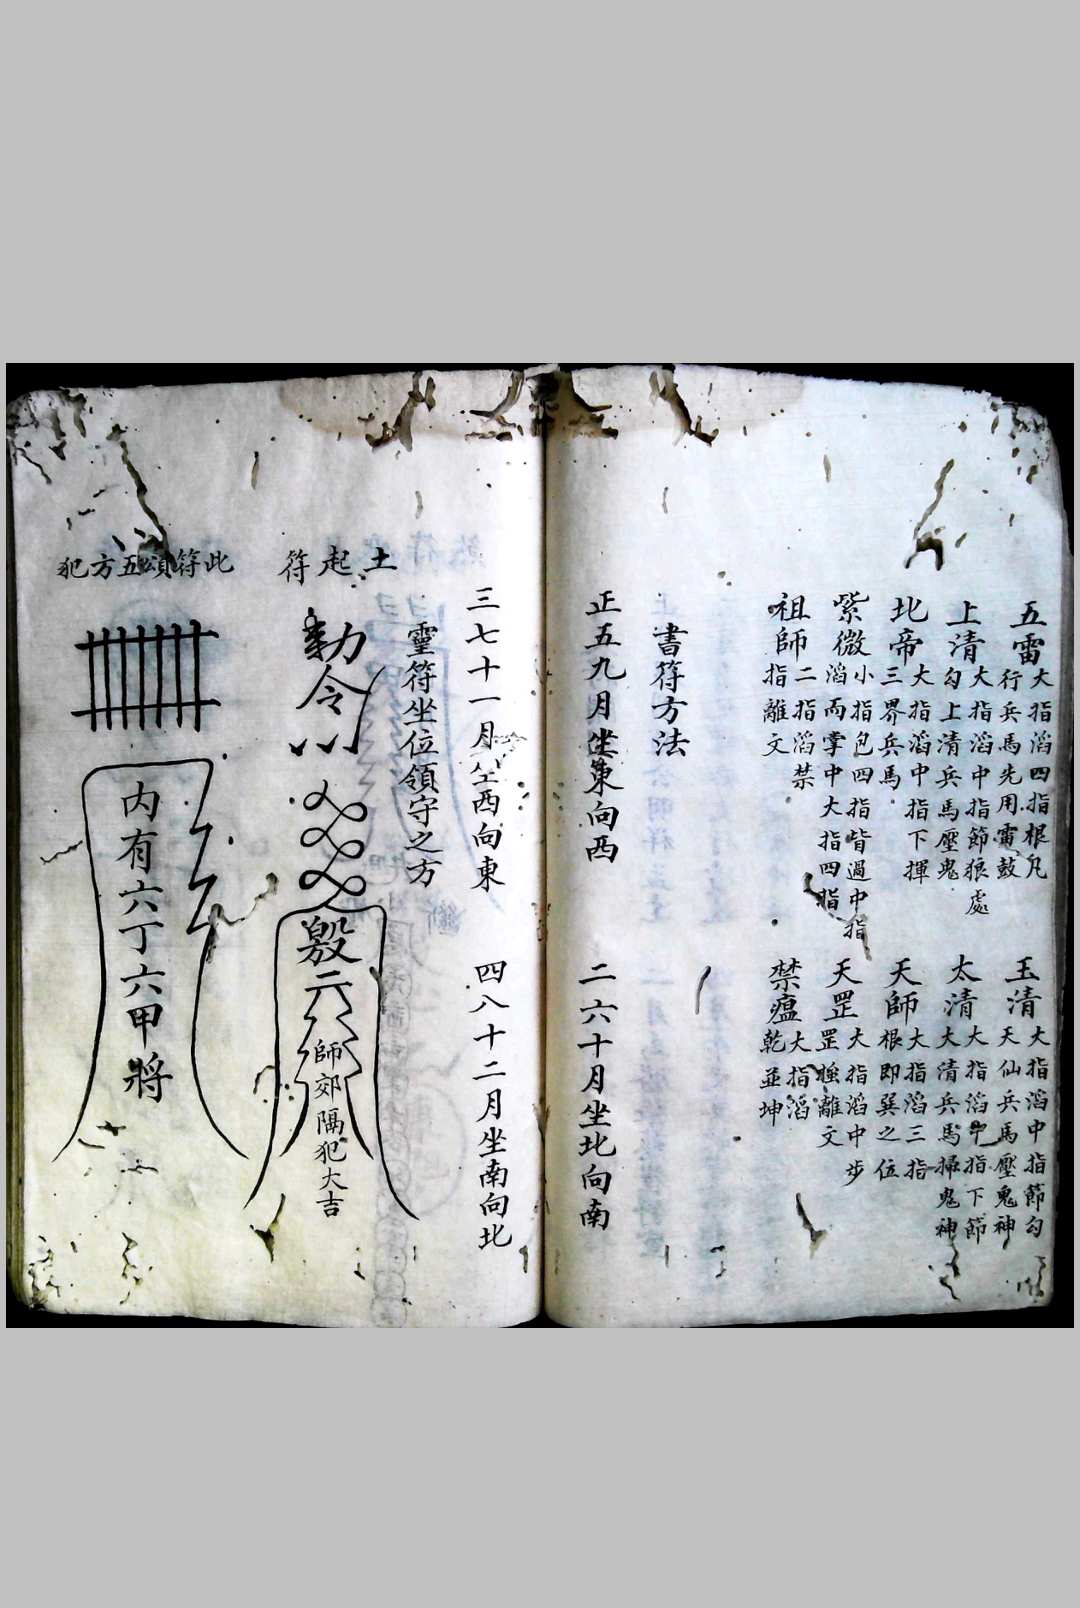 五雷 大指滔四指根凡
行兵馬先用雷鼓
玉清 大指滔中指節勾
天仙兵馬壓鬼神
上清 大指滔中指節狼處
勾上清兵馬壓鬼
太清 大指滔中指下節
大清兵馬掃鬼神
北帝 大指滔中指下揮
三界兵馬
天師 大指滔三指
根即巽之位
紫微 小指包四指皆過中指
滔兩掌中大指四指
天罡 大指滔中步
罡離文
祖師 二指滔禁
指離文
禁瘟 大指滔
乾並坤
書符方法
正五九月坐東向西
二六十月坐北向南
三七十一月坐西向東
四八十二月坐南向北
靈符坐位領守之方
土起符
勅令
師郊隔犯大吉
此符頌五方犯
內有六丁六甲將